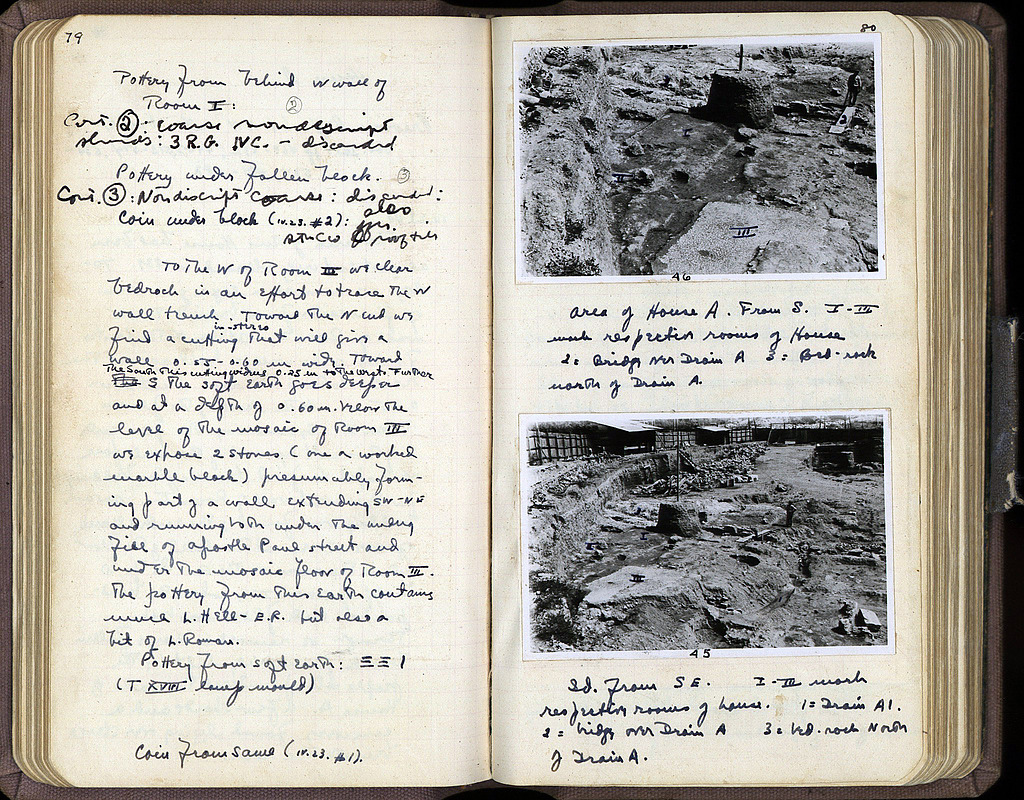 79
Pottery from behind W wall of
Room I: ②
Cont. ②: coarse nondescript
sherds: 3 R.G. IVC. - discarded
Pottery under fallen block. ③
Cont. ③: Nondiscript coarse: discard:
Coin under block (IV.23. #2): also
roof tiles
To the W of Room III we clear
bedrock in an effort to trace the W
wall trench. Toward the N end we
find a cutting that will give a
in-sterro
wall 0.55-0.60 m wide. Toward
the South this cutting widens 0.25 m to the West. Further
S the soft earth goes deeper
and at a depth of 0.60 m. below the
level of the mosaic of Room III
we expose 2 stones (one a worked
marble block) presumably form-
ing part of a wall extending SW-NE
and running both under the
fill of Apostle Paul street and
under the mosaic floor of Room III.
The pottery from this earth contains
much L. Hell- E.R. but also a
bit of L. Roman.
Pottery from soft earth: ΞΞ 1
(T XVIII lamp mould)
Coin from same (IV.23. #1).
80
I
II
III
46
area of House A. From S. I-III
mark respective rooms of House
2= Bridge over Drain A 3= Bed-rock
north of Drain A.
I
III
45
Id. from SE. I-III mark
respective rooms of house. 1= Drain A1.
2= bridge over Drain A 3= bed-rock North
of Drain A.